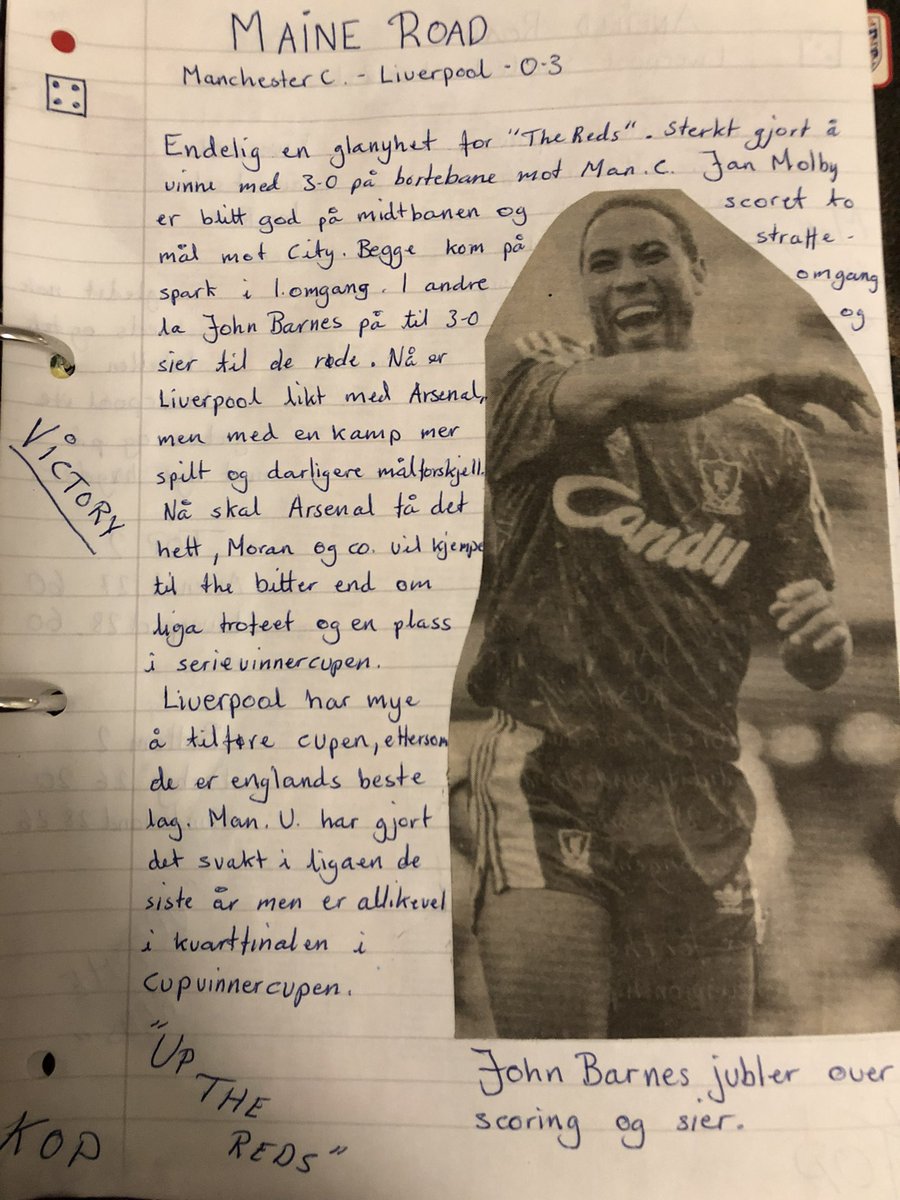 MAINE ROAD
Manchester C. - Liverpool - 0-3
Endelig en glanyhet for "The Reds". Sterkt gjort å
vinne med 3-0 på bortebane mot Man. C. Jan Molby
er blitt god på midtbanen og scoret to
mål mot City. Begge kom på straffe-
spark i 1. omgang. I andre omgang
la John Barnes på til 3-0 og
sier til de røde. Nå er
Liverpool likt med Arsenal,
men med en kamp mer
spilt og darligere målforskjell.
Nå skal Arsenal få det
hett, Moran og co. vil kjempe
til the bitter end om
liga trofeet og en plass
i serievinnercupen.
Liverpool har mye
å tilføre cupen, ettersom
de er englands beste
lag. Man. U. har gjort
det svakt i ligaen de
siste år men er allikevel
i kvartfinalen i
Cupvinnercupen.
VICTORY
Candy
"UP
THE
REDS"
KOP
John Barnes jubler over
scoring og sier.